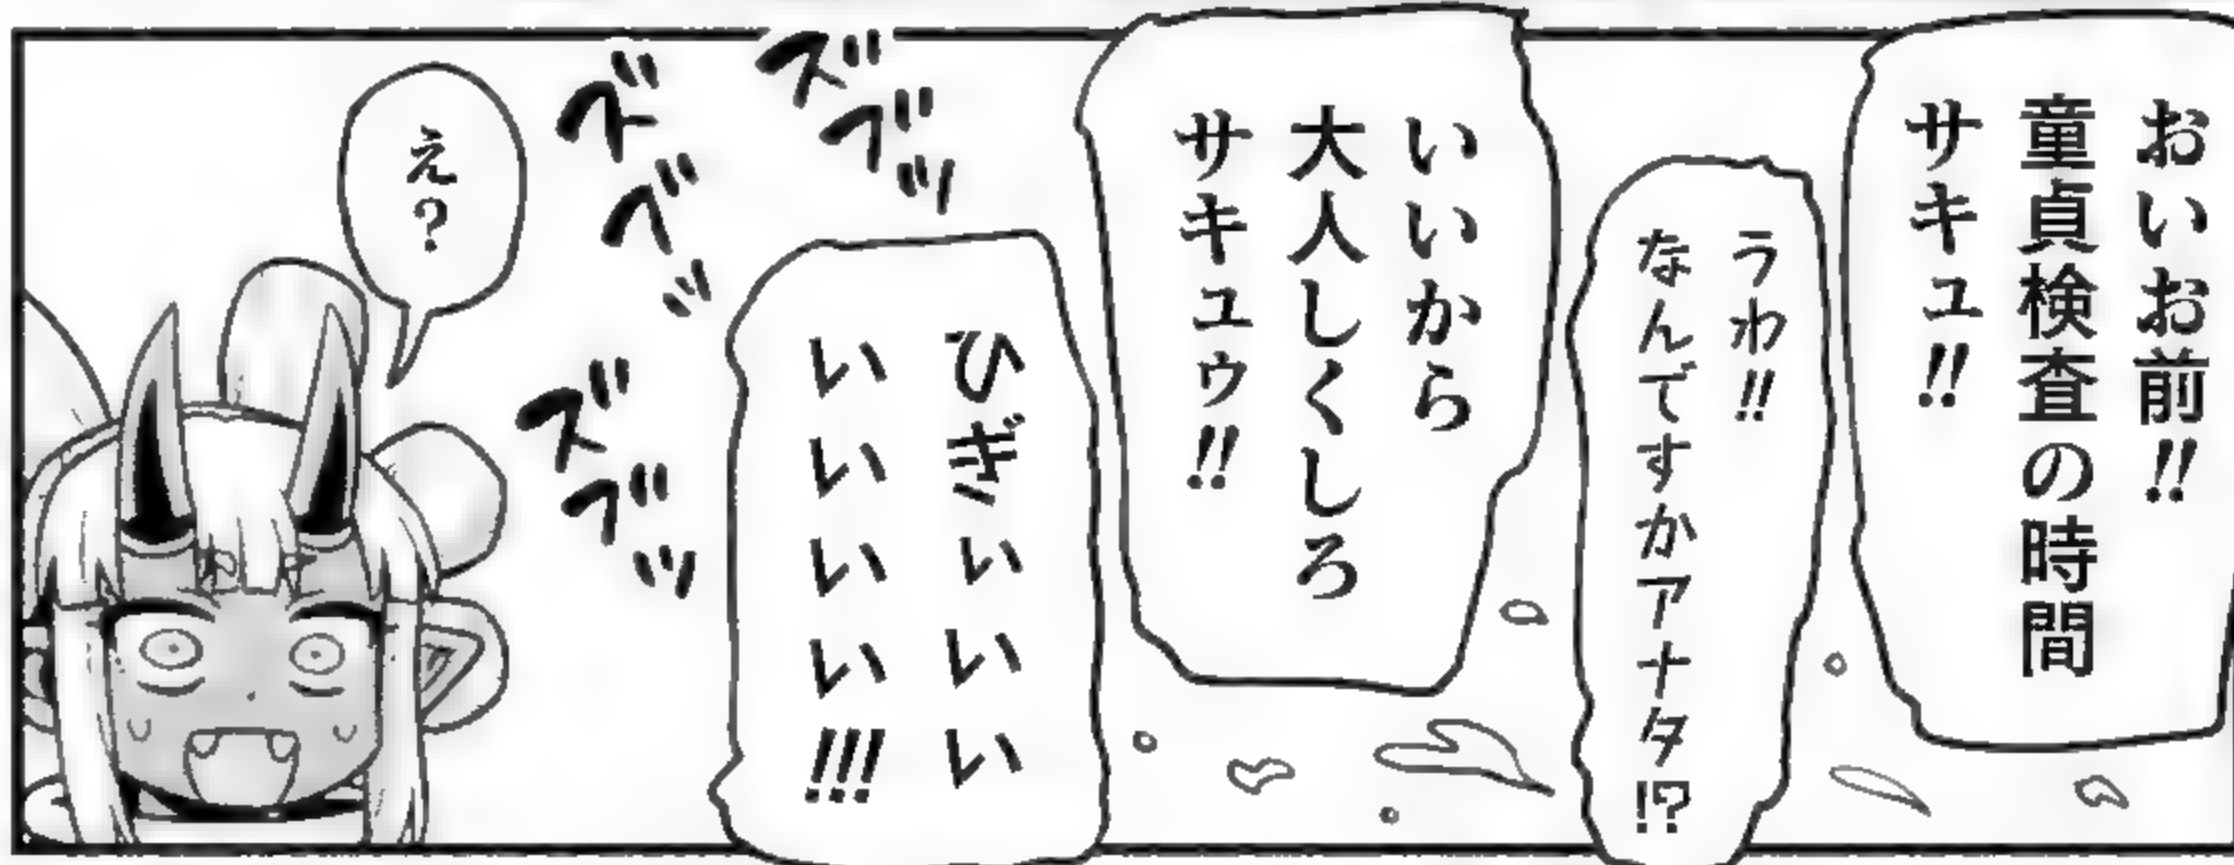 おいお前!!
童貞検査の時間
サキュ!!
うわ!!
なんですかアナタ!?
いいから
大人しくしろ
サキュゥ!!
ひぎぃいい
いいいい!!!
ズブッ
ズブッ
ズブッ
え?